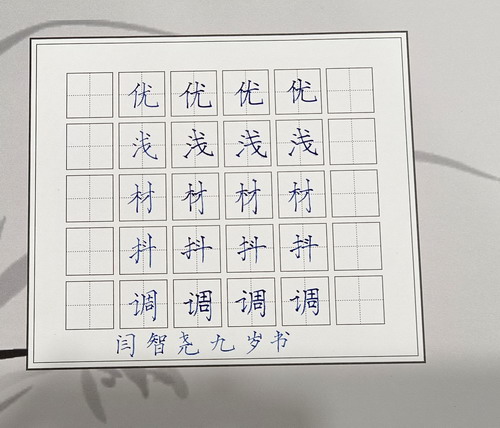 优优优优
浅浅浅浅
材材材材
抖抖抖抖
调调调调
闫智尧九岁书